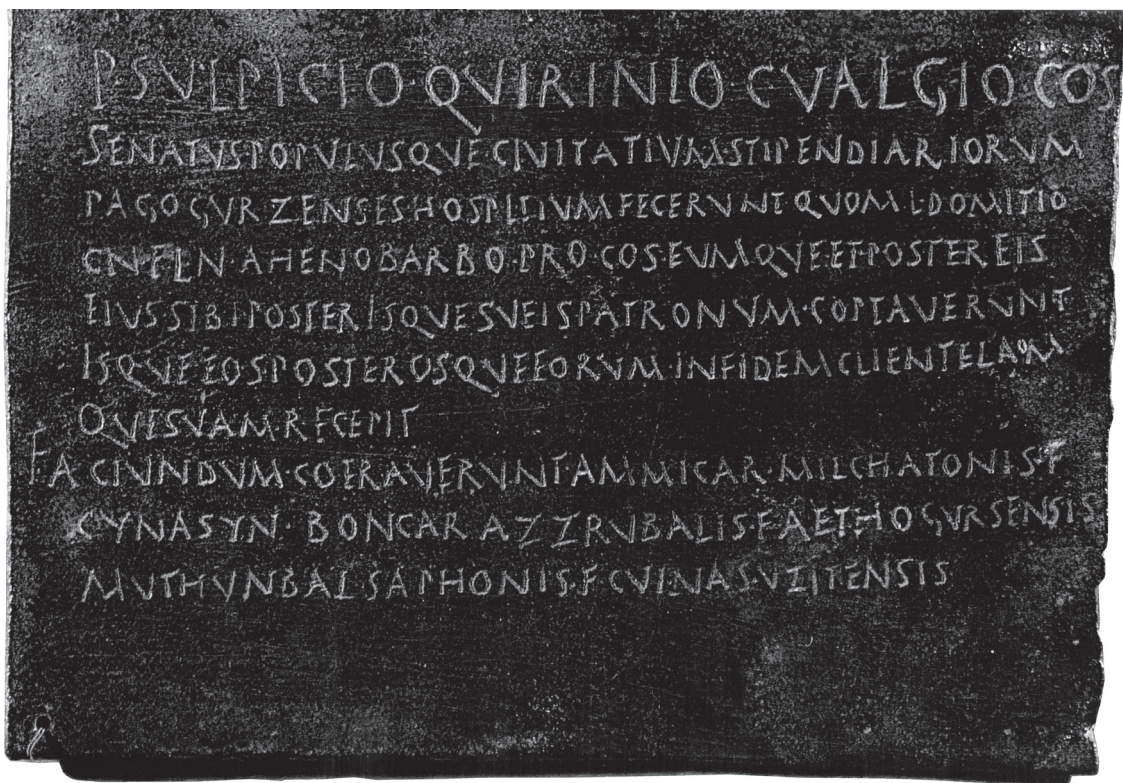 P·SVLPICIO·QVIRINIO·C VALGIO·COS
SENATVS POPVLVSQVE CIVITATIVM STIPENDIARIORVM
PAGO GVRZENSES HOSPITIVM FECERVNT QVOM L·DOMITIO
CN F L N AHENOBARBO·PRO·COS EVMQVE ET POSTEREIS
EIVS SIBI POSTERISQVE SVEIS PATRONVM·COPTAVERVNT
ISQVE EOS POSTEROSQVE EORVM·IN FIDEM CLIENTELAM
QVE SVAM·RECEPIT
FACIVNDVM·COERAVERVNT AMMICAR·MILCHATONIS·F
CYNASYN·BONCAR AZZRVBALIS·F AETHOGVRSENSIS
MVTHVNBAL SAPHONIS·F CVI NAS VZITENSIS